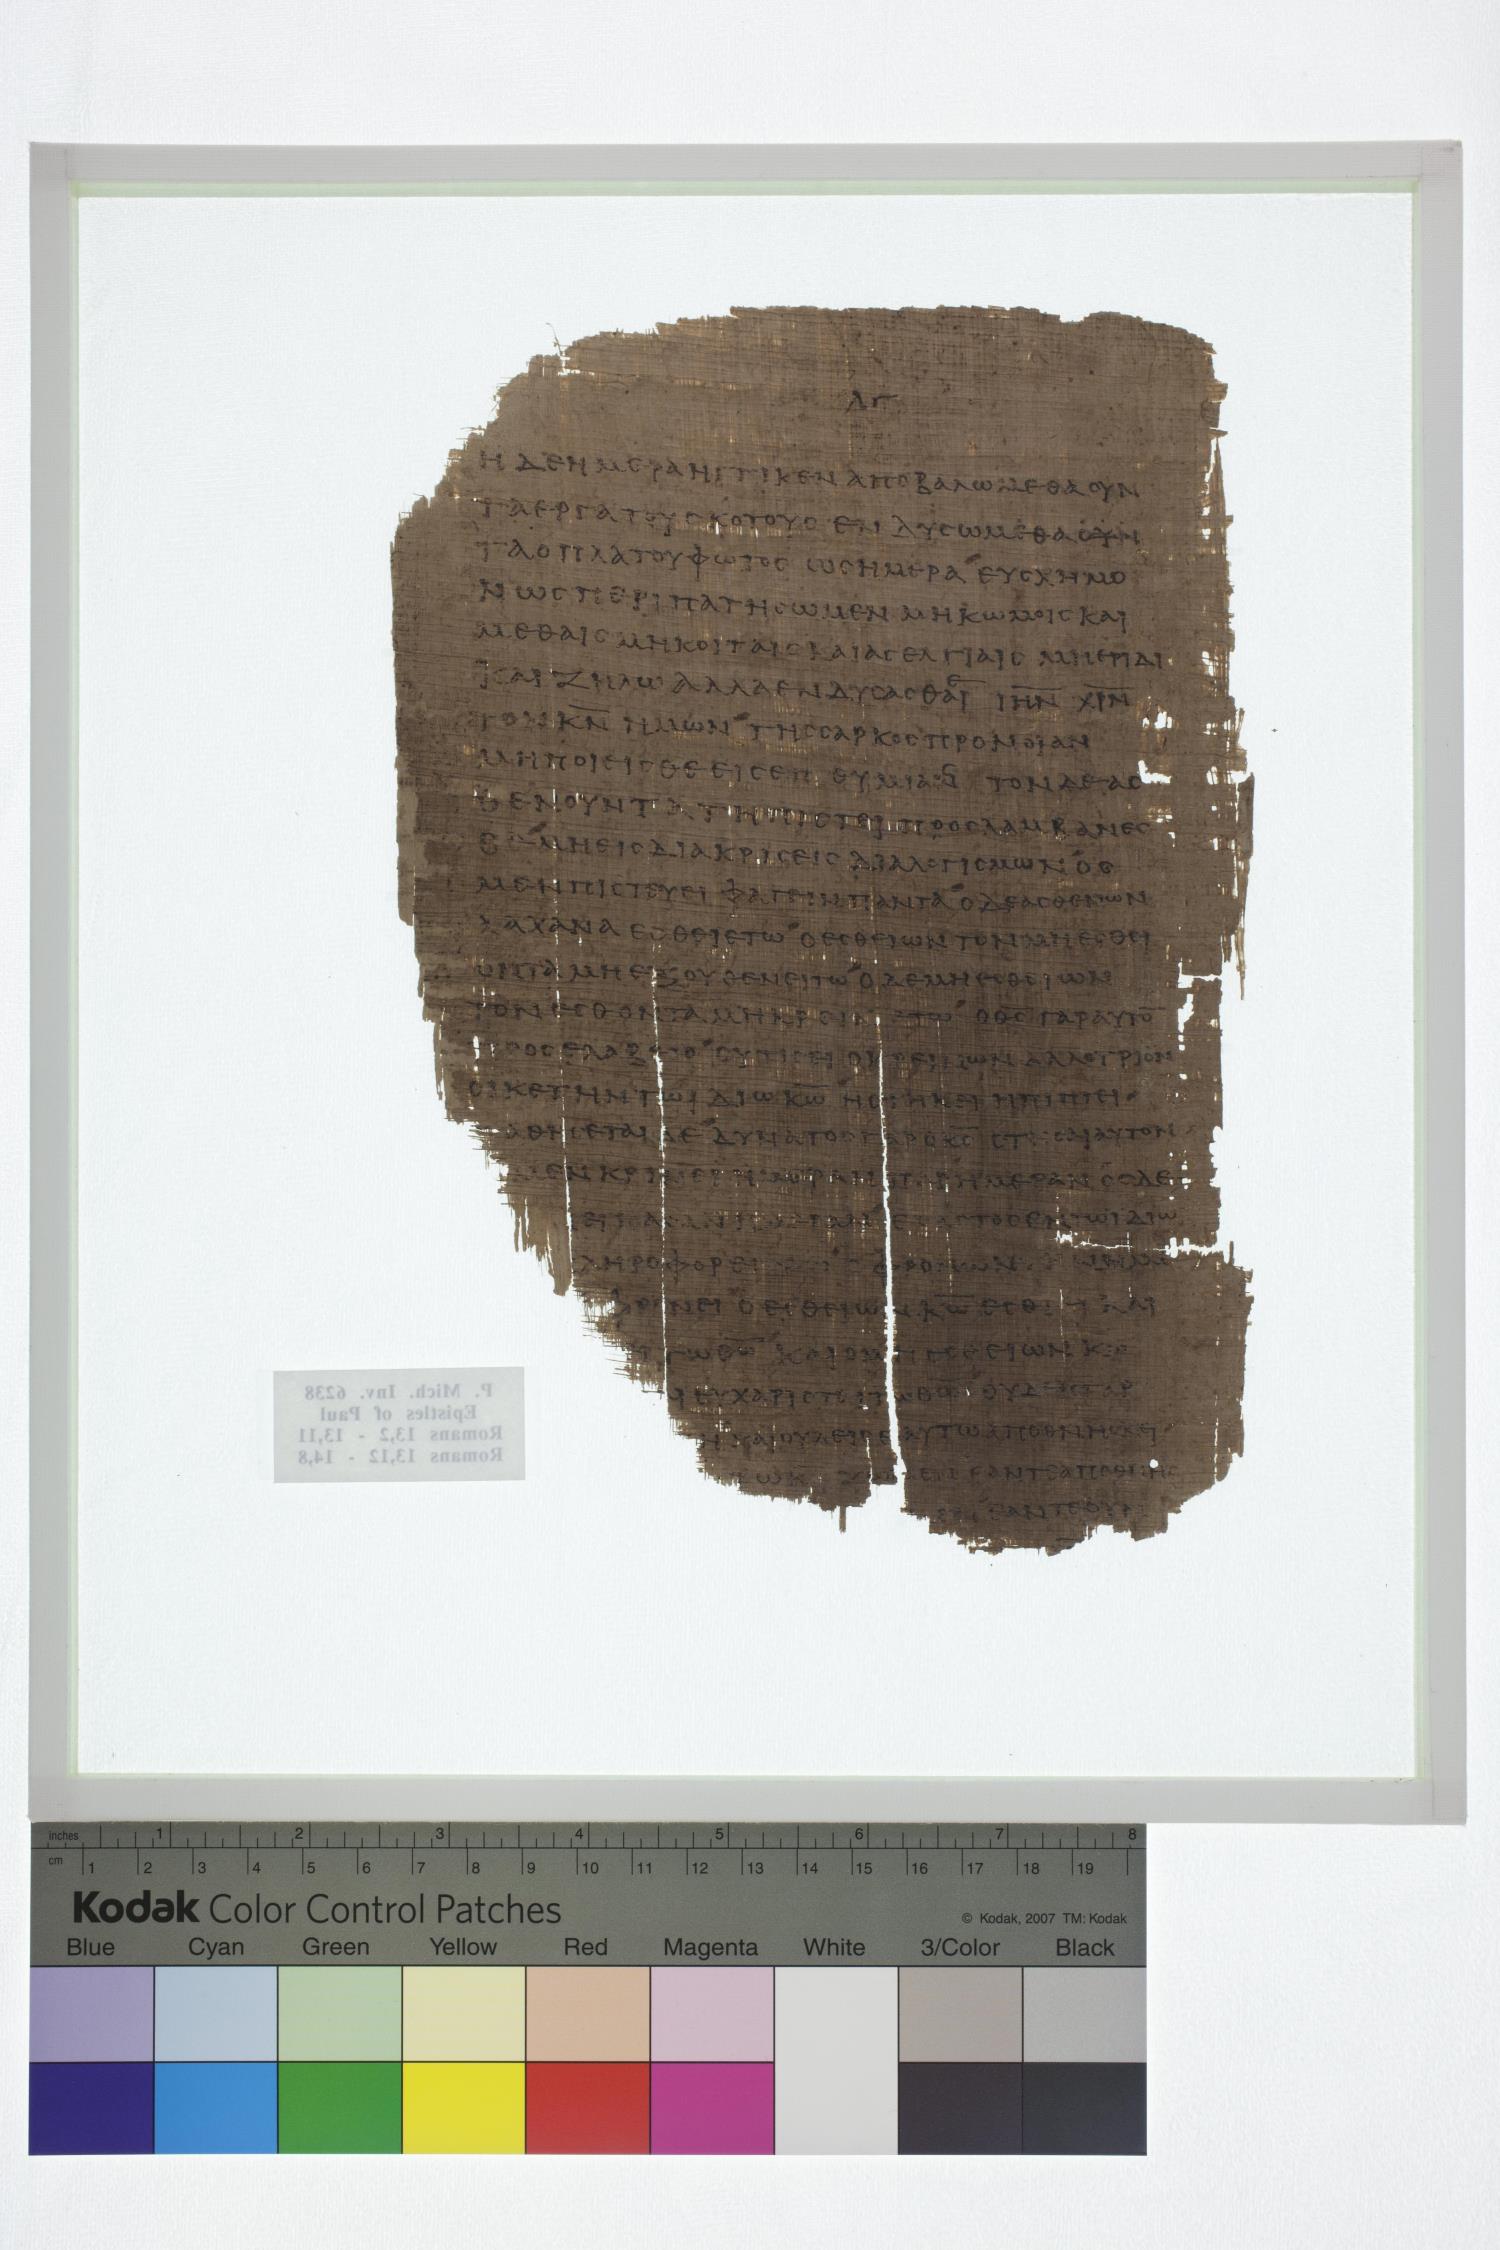 ΛΓ
Η ΔΕ ΗΜΕΡΑ ΗΓΓΙΚΕΝ ΑΠΟΒΑΛΩΜΕΘΑ ΟΥΝ
ΤΑ ΕΡΓΑ ΤΟΥ ΣΚΟΤΟΥΣ ΕΝΔΥΣΩΜΕΘΑ ΟΥΝ
ΤΑ ΟΠΛΑ ΤΟΥ ΦΩΤΟΣ ΩΣ ΗΜΕΡΑ ΕΥΣΧΗΜΟ
ΝΩΣ ΠΕΡΙΠΑΤΗΣΩΜΕΝ ΜΗ ΚΩΜΟΙΣ ΚΑΙ
ΜΕΘΑΙΣ ΜΗ ΚΟΙΤΑΙΣ ΚΑΙ ΑΣΕΛΓΙΑΙΣ ΜΗ ΕΡΙΔΙ
ΚΑΙ ΖΗΛΩ ΑΛΛΑ ΕΝΔΥΣΑΣΘΑΙ ΙΗΝ ΧΡΝ
ΤΟΝ ΚΝ ΗΜΩΝ ΤΗΣ ΣΑΡΚΟΣ ΠΡΟΝΟΙΑΝ
ΜΗ ΠΟΙΕΙΣΘΕ ΕΙΣ ΕΠΙΘΥΜΙΑΣ ΤΟΝ ΔΕ ΑΣ
ΘΕΝΟΥΝΤΑ ΤΗ ΠΙΣΤΕΙ ΠΡΟΣΛΑΜΒΑΝΕΣ
ΘΕ ΜΗ ΕΙΣ ΔΙΑΚΡΙΣΕΙΣ ΔΙΑΛΟΓΙΣΜΩΝ ΟΣ
ΜΕΝ ΠΙΣΤΕΥΕΙ ΦΑΓΕΙΝ ΠΑΝΤΑ Ο ΔΕ ΑΣΘΕΝΩΝ
ΛΑΧΑΝΑ ΕΣΘΕΙΕΤΩ Ο ΕΣΘΕΙΩΝ ΤΟΝ ΜΗ ΕΣΘΕΙ
ΟΝΤΑ ΜΗ ΕΞΟΥΘΕΝΕΙΤΩ Ο ΔΕ ΜΗ ΕΣΘΕΙΩΝ
ΤΟΝ ΕΣΘΟΝΤΑ ΜΗ ΚΡΕΙΝΕΤΩ Ο ΘΣ ΓΑΡ ΑΥΤΟ
ΠΡΟΣΕΛΑΒΕΤΟ ΣΥ ΤΙΣ ΕΙ Ο ΚΡΕΙΝΩΝ ΑΛΛΟΤΡΙΟΝ
ΟΙΚΕΤΗΝ ΤΩ ΙΔΙΩ ΚΩ Η ΣΤΗΚΕΙ Η ΠΙΠΤΕΙ
ΣΤΑΘΗΣΕΤΑΙ ΔΕ ΔΥΝΑΤΟΣ ΓΑΡ Ο ΚΣ ΣΤΗΣΑΙ ΑΥΤΟΝ
ΜΕΝ ΚΡΙΝΕΙ ΗΜΕΡΑΝ ΠΑΡ ΗΜΕΡΑΝ ΟΣ ΔΕ
ΕΚΑΣΤΟΣ ΕΝ ΤΩ ΙΔΙΩ
ΛΗΡΟΦΟΡΕΙ ΦΡΟΝΩΝ
ΦΡΟΝΕΙ Ο ΕΣΘΕΙΩΝ ΚΩ ΕΣΘΙΕΙ ΚΑΙ
ΤΩ ΘΩ ΚΑΙ Ο ΜΗ ΕΣΘΕΙΩΝ ΚΩ
ΕΥΧΑΡΙΣΤΕΙ ΤΩ ΘΩ ΟΥΔΕΙΣ ΓΑΡ
Η ΚΑΙ ΟΥΔΕΙΣ ΕΑΥΤΩ ΑΠΟΘΝΗΣΚΕΙ
ΕΑΝ ΤΕ ΑΠΟΘΝΗΣ
ΕΑΝ ΤΕ ΟΥΝ
P. Mich. Inv. 6238
Epistles of Paul
Romans 13,2 - 13,11
Romans 13,12 - 14,8
inches 1 2 3 4 5 6 7 8
cm 1 2 3 4 5 6 7 8 9 10 11 12 13 14 15 16 17 18 19
Kodak Color Control Patches
© Kodak, 2007 TM: Kodak
Blue Cyan Green Yellow Red Magenta White 3/Color Black